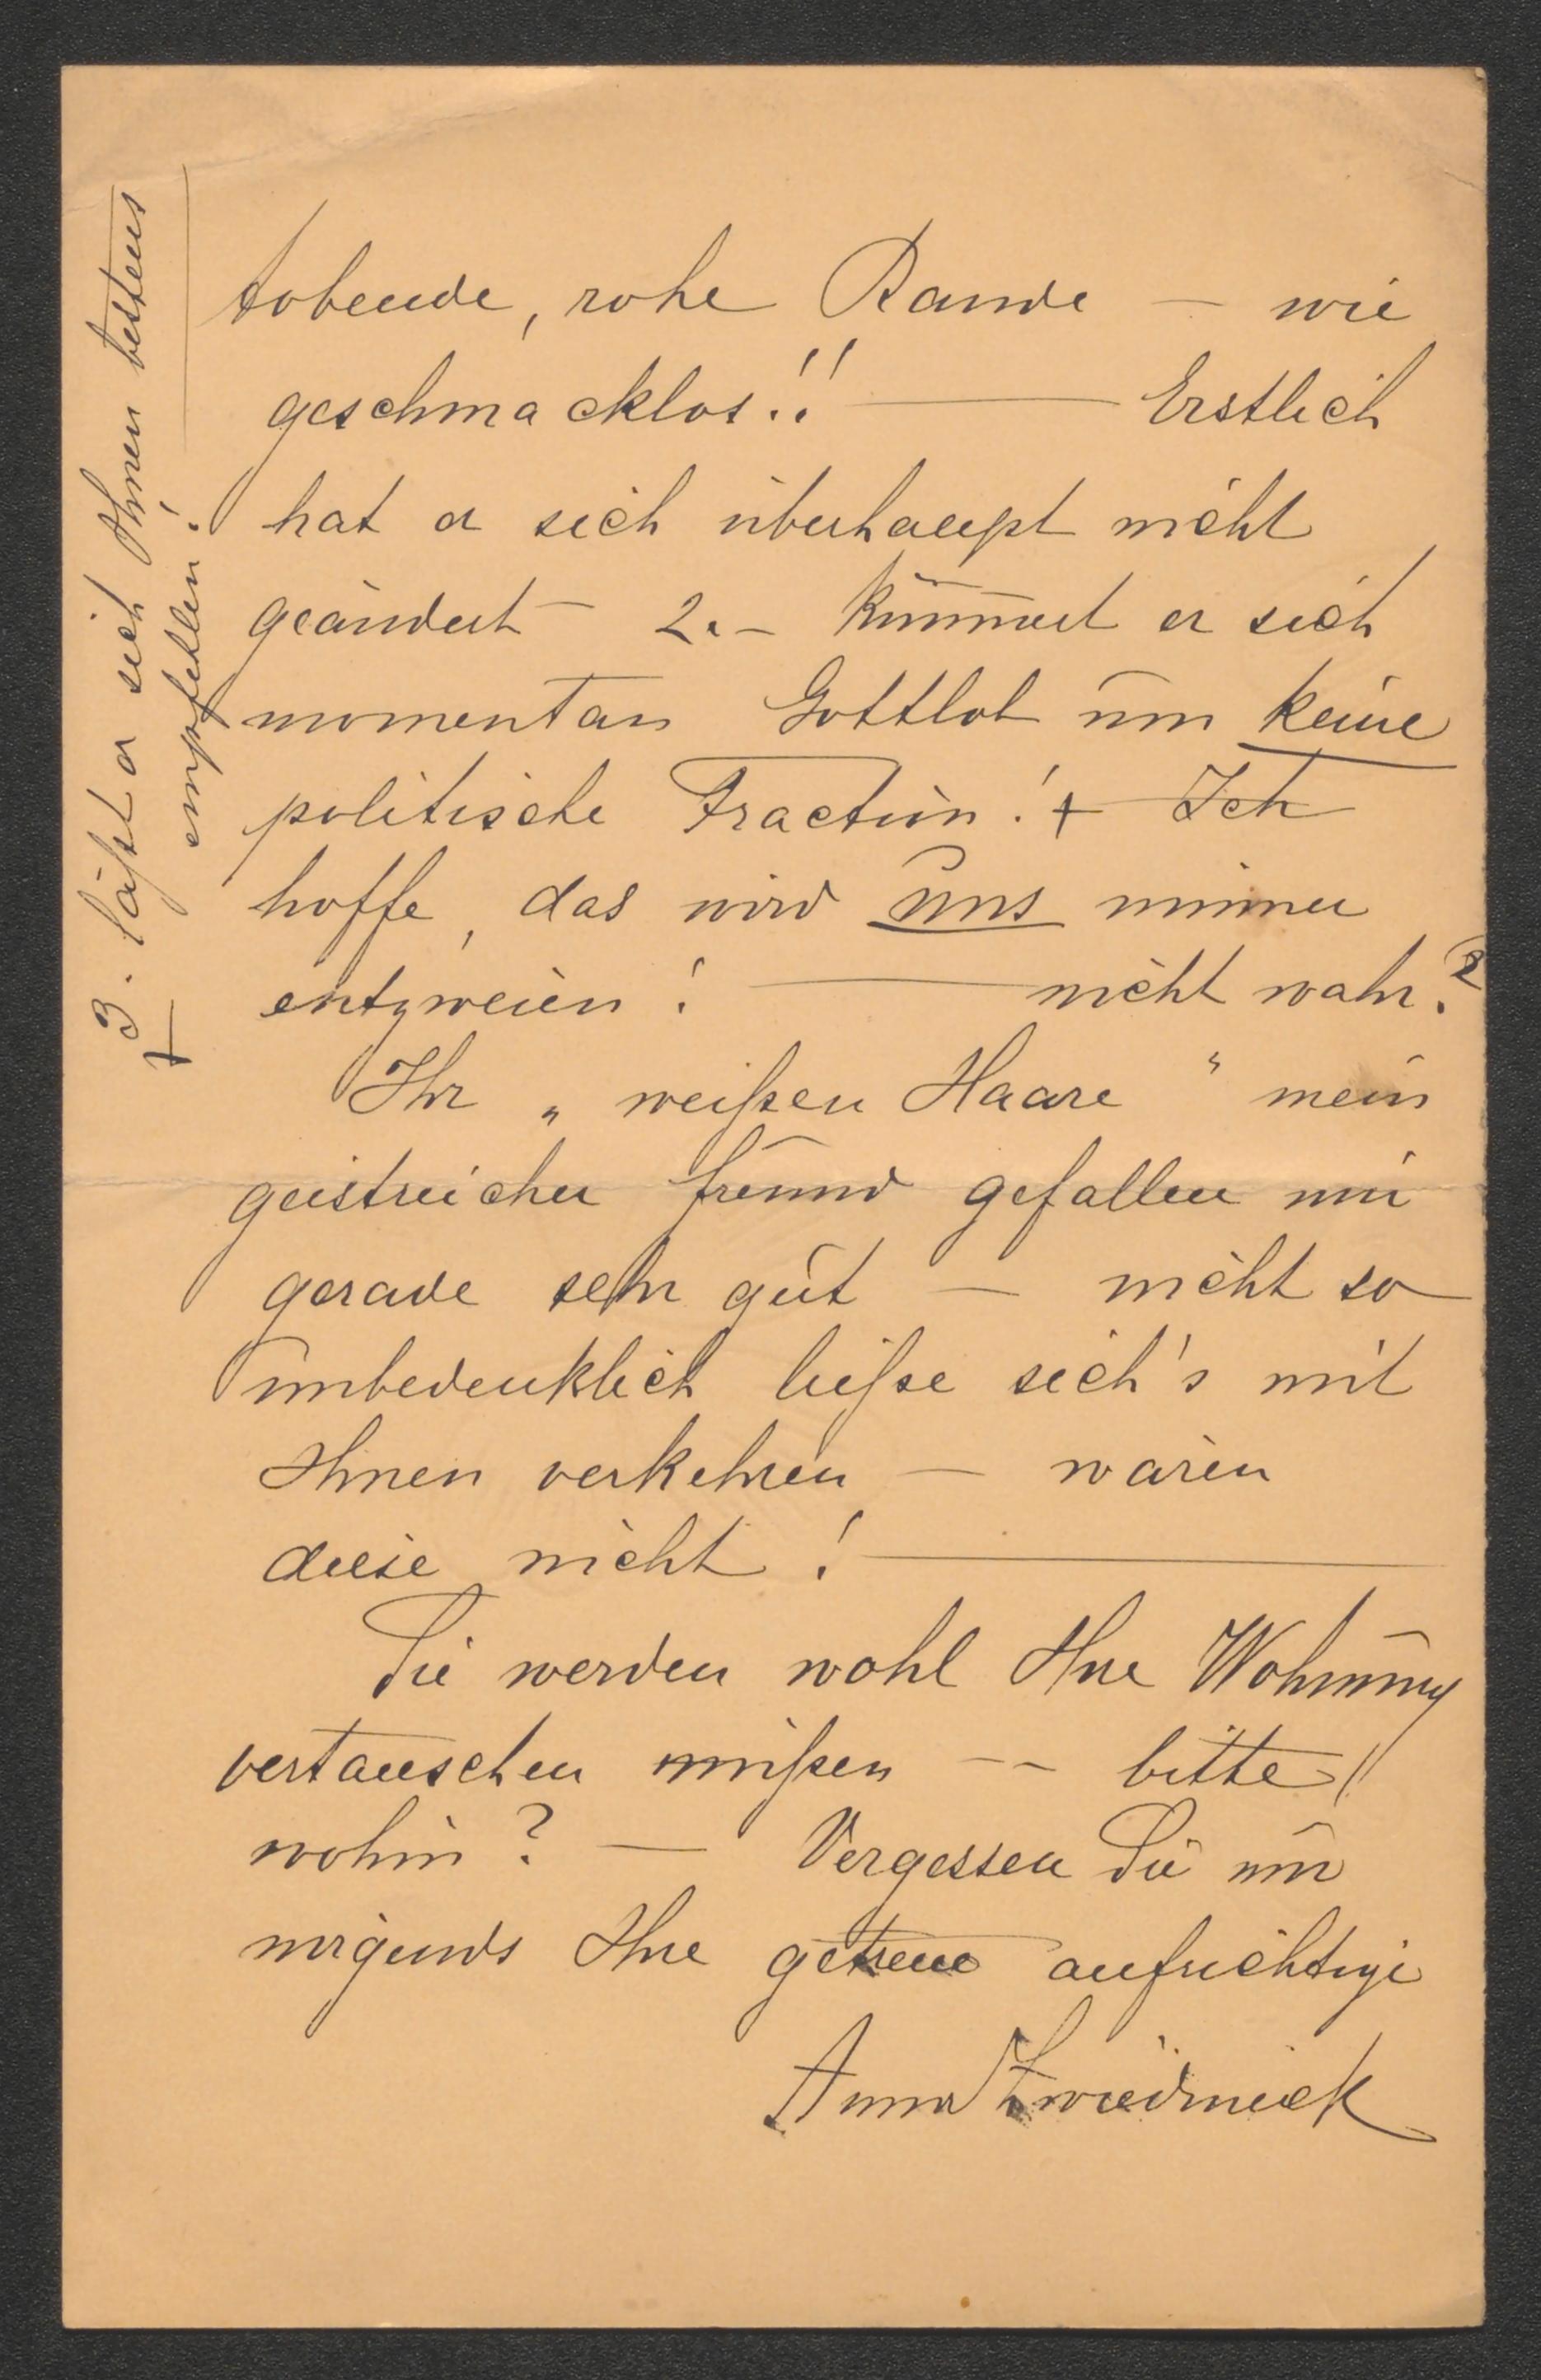 tobende, rohe Bande — wie
geschmacklos!! — Erstlich
hat er sich überhaupt nicht
geändert — 2. — kümmert er sich
momentan Gottlob um keine
politische Fraction! + Ich
hoffe, das wird uns nimmer
entzweien! — nicht wahr?
Ihr „weißen Haare" mein
geistreicher Freund gefallen mir
gerade sehr gut — nicht so
unbedenklich ließe sich's mit
Ihnen verkehren — wären
diese nicht! —
Sie werden wohl Ihre Wohnung
vertauschen müßen — bitte
wohin? — Vergessen Sie nur
nirgends Ihre getreue aufrichtige
Anna Zwiedineck
+ 3. läßt er sich Ihnen bestens
empfehlen!